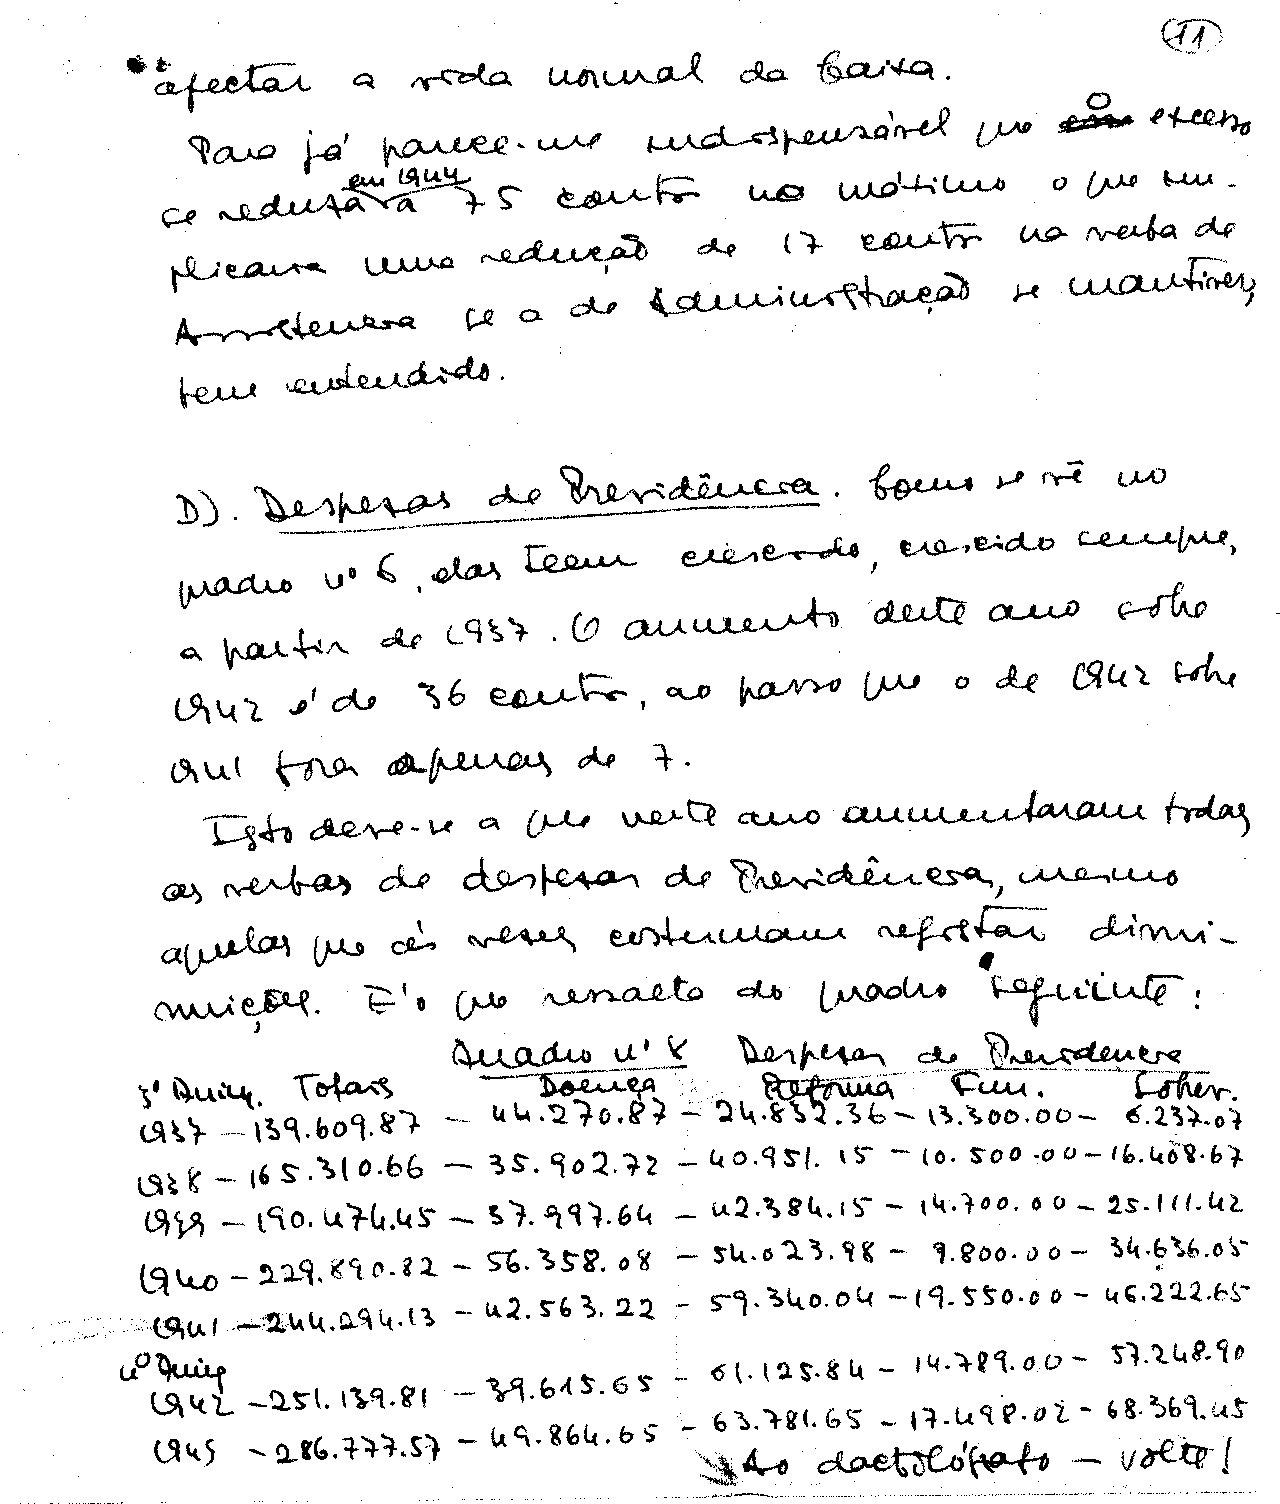 11
afectar a vida normal da Caixa.
Para já parece-me indispensável que o excesso
em 1944
se reduza a 75 contos no máximo o que im-
plicaria uma redução de 17 contos na verba de
Assistencia se a de Administração se mantiver,
bem entendido.
D). Despesas de Previdência. Como se vê no
quadro nº 6, elas teem crescido, crescido sempre,
a partir de 1937. O aumento deste ano sôbre
1942 é de 36 contos, ao passo que o de 1942 sobre
1941 fora apenas de 7.
Isto deve-se a que neste ano aumentaram todas
as verbas de despesas de Previdência, mesmo
aquelas que ás vezes costumam registar dimi-
nuições. E' o que ressalta do quadro seguinte:
Quadro nº 8 Despesas de Previdencia
3º Quinq. Totais Doença Reforma Fun. Sobrev.
1937 - 139.609.87 - 44.270.87 - 24.832.36 - 13.300.00 - 6.237.07
1938 - 165.310.66 - 35.902.72 - 40.951.15 - 10.500.00 - 16.408.67
1939 - 190.474.45 - 37.997.64 - 42.384.15 - 14.700.00 - 25.111.42
1940 - 229.890.82 - 56.358.08 - 54.023.98 - 9.800.00 - 34.636.05
1941 - 244.294.13 - 42.563.22 - 59.340.04 - 19.550.00 - 46.222.65
4º Quinq
1942 - 251.139.81 - 39.615.65 - 61.125.84 - 14.789.00 - 57.248.90
1943 - 286.777.57 - 49.864.65 - 63.781.65 - 17.498.02 - 68.369.45
Ao dactilógrafo - volte!